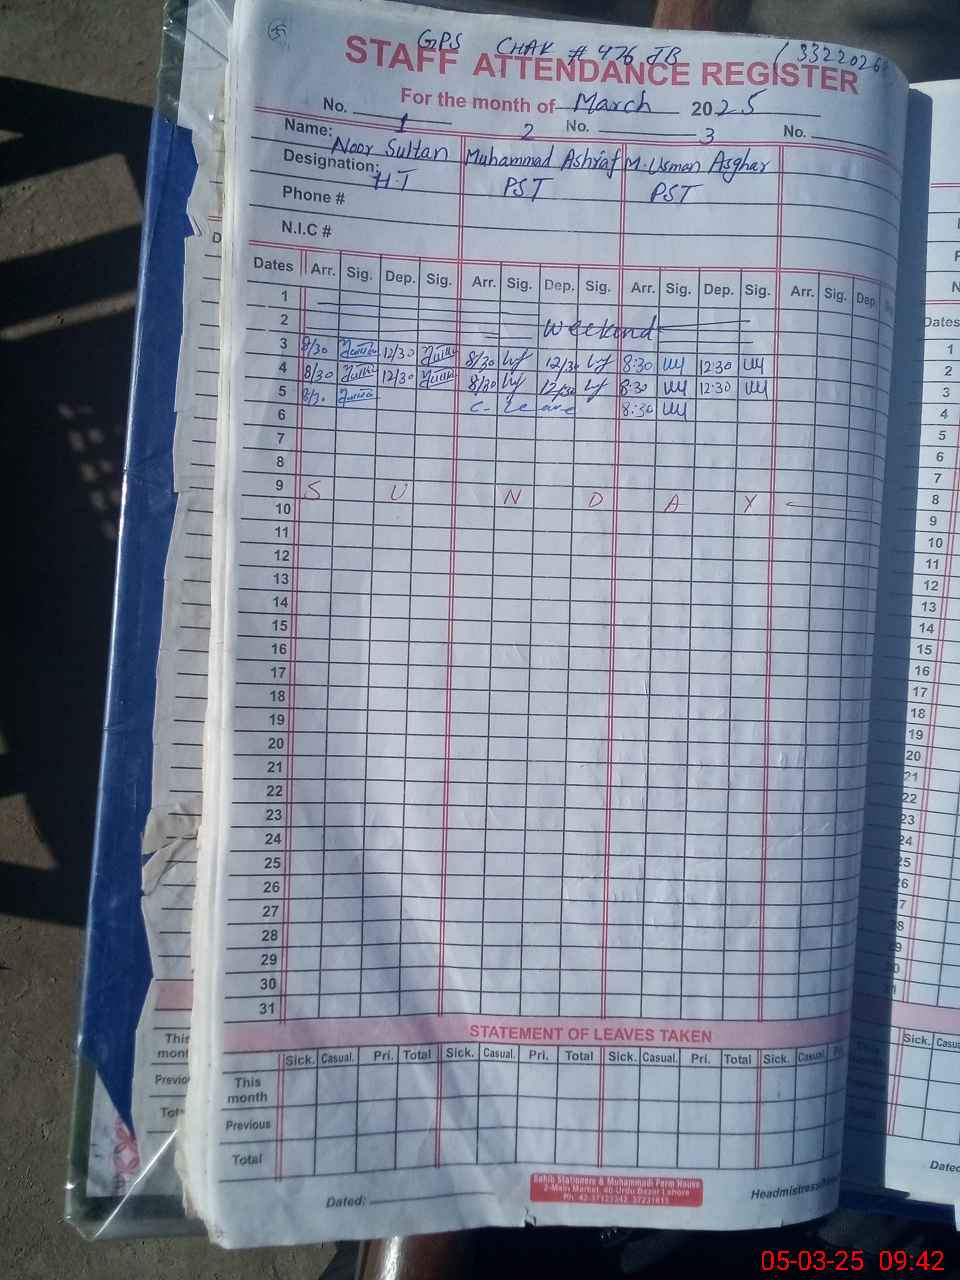 GPS CHAK # 476 JB
STAFF ATTENDANCE REGISTER
For the month of March 2025
No. 1 No. 2 No. 3
Name: Noor Sultan Muhammad Ashraf M. Usman Asghar
Designation: HT PST PST
Phone #
N.I.C #
Dates Arr. Sig. Dep. Sig. Arr. Sig. Dep. Sig. Arr. Sig. Dep. Sig. Arr. Sig. Dep.
1
2 Weekend
3 8/30 12/30 8/30 12/30 8:30 12:30
4 8/30 12/30 8/30 12/30 8:30 12:30
5 8/30 C-Leave 8:30
6
7
8
9 S U N D A Y
10
11
12
13
14
15
16
17
18
19
20
21
22
23
24
25
26
27
28
29
30
31
STATEMENT OF LEAVES TAKEN
Sick. Casual. Pri. Total Sick. Casual. Pri. Total Sick. Casual. Pri. Total Sick. Casual.
This month
Previous
Total
Dated:
Sahib Stationers & Muhammadi Form House
2-Main Market, 40-Urdu Bazar Lahore
Headmistress
Dates
1
2
3
4
5
6
7
8
9
10
11
12
13
14
15
16
17
18
19
20
21
22
23
24
25
26
27
28
29
30
Sick.
Dated
05-03-25 09:42